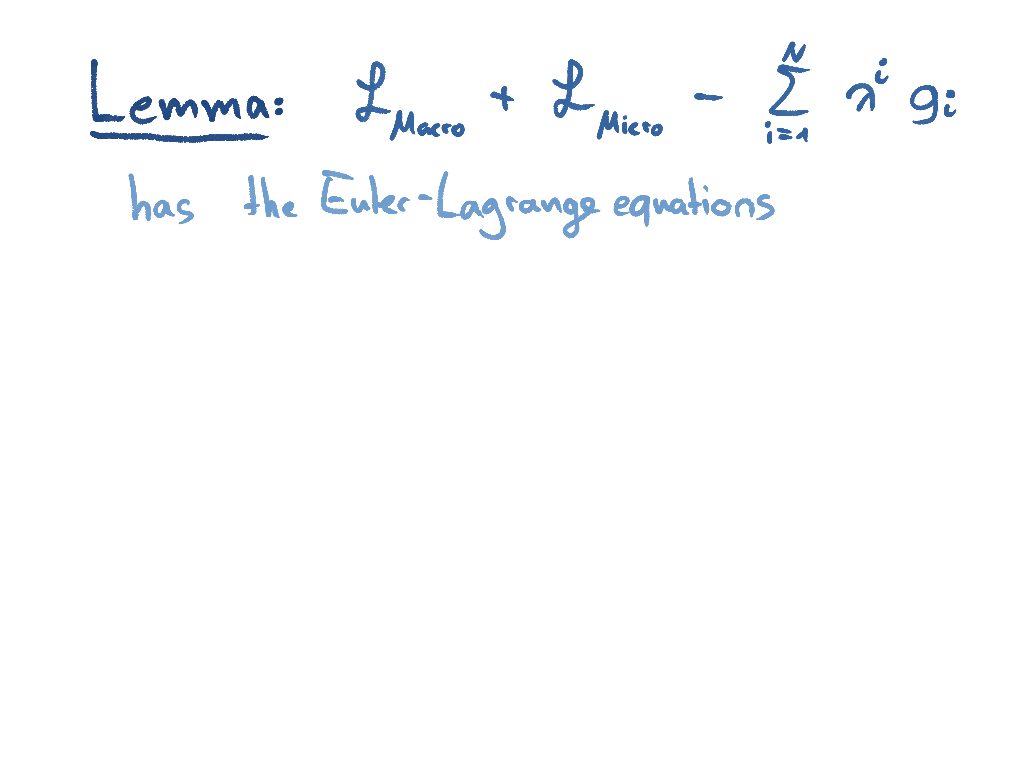 Lemma: ℒ_Macro + ℒ_Micro - ∑_{i=1}^{N} λ^i g_i
has the Euler-Lagrange equations